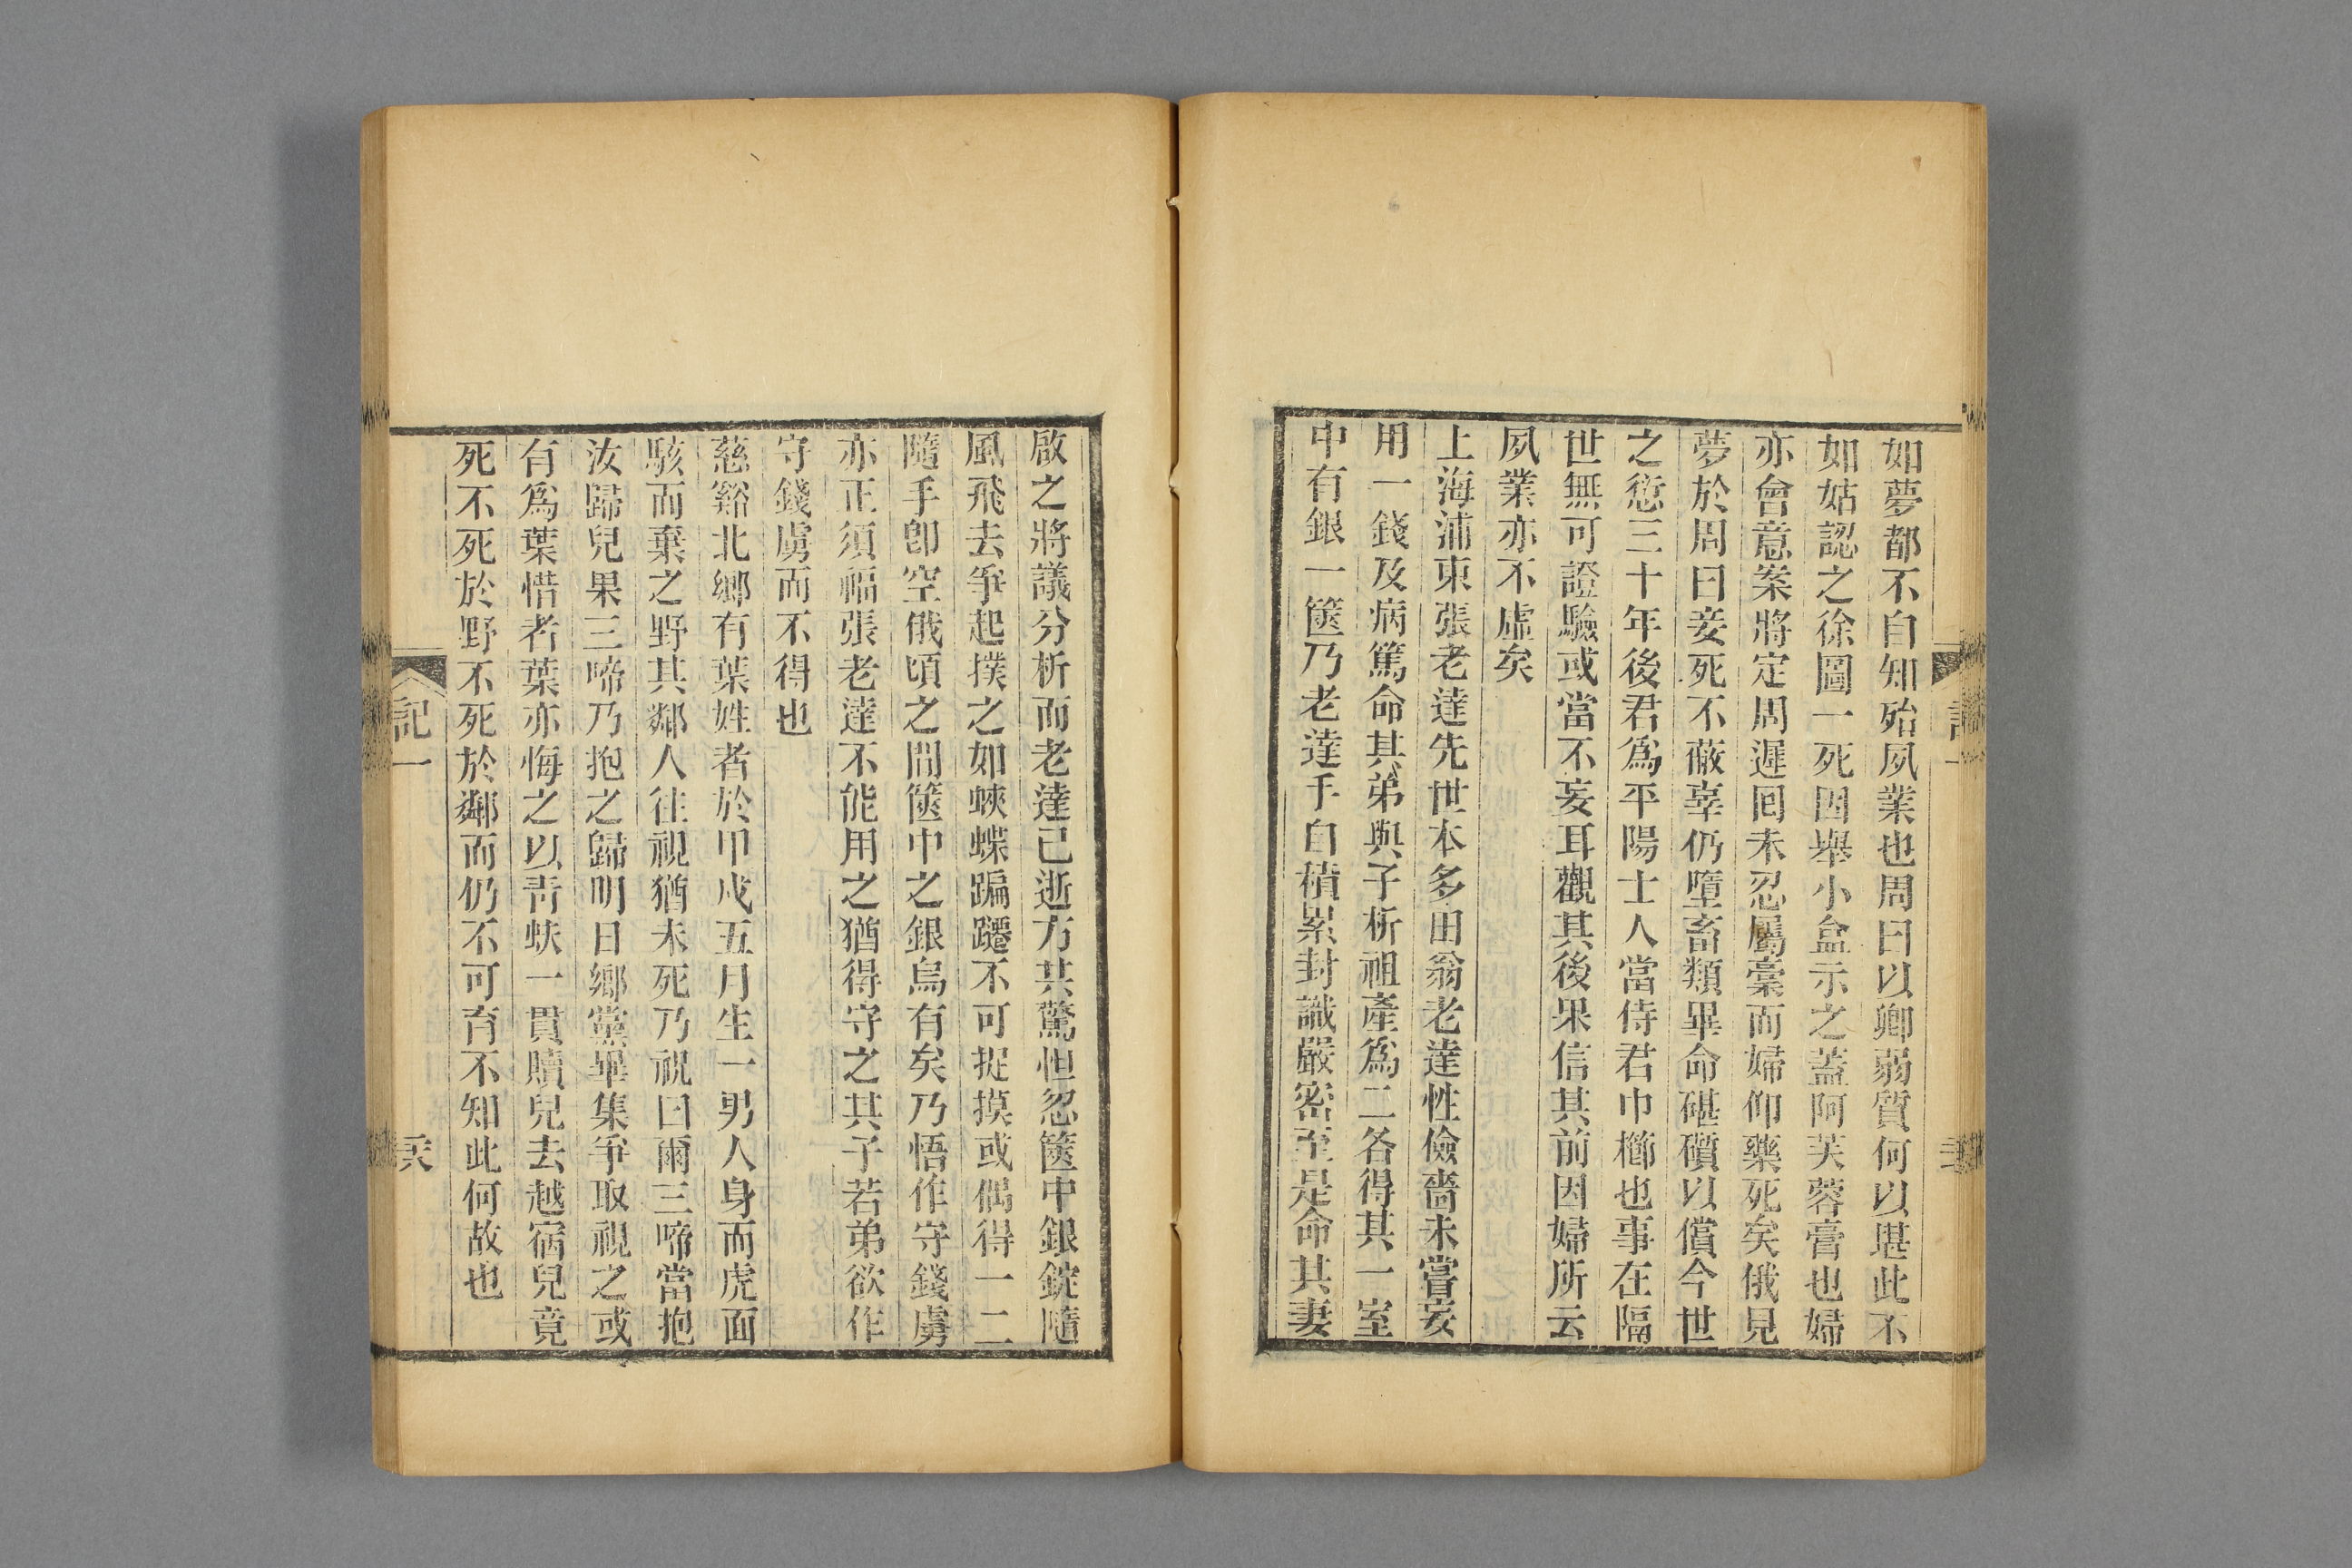 如夢都不自知殆夙業也周曰以卿弱質何以堪此不
如姑認之徐圖一死因舉小盒示之蓋阿芙蓉膏也婦
亦會意案將定周遲囘未忍屬稾而婦仰藥死矣俄見
夢於周曰妾死不蔽辜仍墮畜類畢命碪礩以償今世
之愆三十年後君爲平陽士人當侍君巾櫛也事在隔
世無可證驗或當不妄耳觀其後果信其前因婦所云
夙業亦不虛矣
上海浦東張老達先世本多田翁老達性儉嗇未嘗妄
用一錢及病篤命其弟與子析祖產爲二各得其一室
中有銀一篋乃老達手自積累封識嚴密至是命其妻
啟之將議分析而老達已逝方共驚怛忽篋中銀錠隨
風飛去爭起撲之如蛺蝶蹁躚不可捉摸或偶得一二
隨手卽空俄頃之間篋中之銀烏有矣乃悟作守錢虜
亦正須福張老達不能用之猶得守之其子若弟欲作
守錢虜而不得也
慈谿北鄉有葉姓者於甲戌五月生一男人身而虎面
駭而棄之野其鄰人往視猶未死乃祝曰爾三啼當抱
汝歸兒果三啼乃抱之歸明日鄉黨畢集爭取視之或
有爲葉惜者葉亦悔之以靑蚨一貫贖兒去越宿兒竟
死不死於野不死於鄰而仍不可育不知此何故也
記一